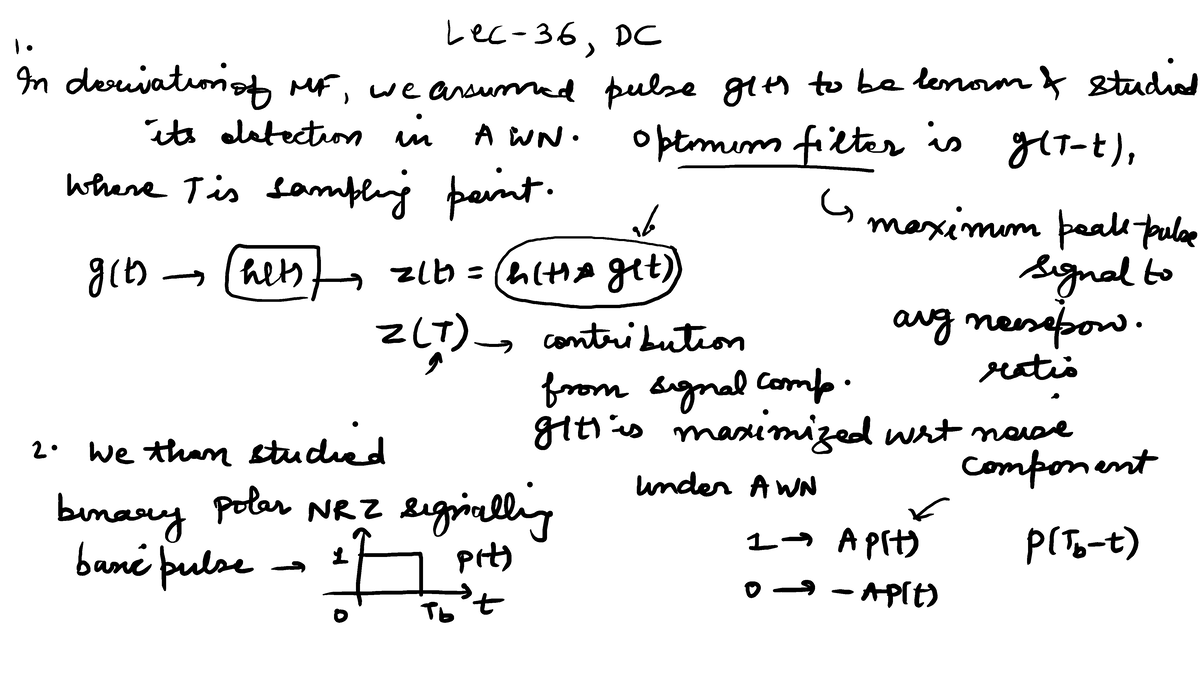 Lec-36, DC
1.
In derivation of MF, we assumed pulse g(t) to be known & studied
its detection in AWN. Optimum filter is g(T-t),
where T is sampling point.
↳ maximum peak-pulse
signal to
avg noise pow.
ratio
g(t) → h(t) → z(t) = h(t) * g(t)
z(T) → contribution
from signal comp.
g(t) is maximized wrt noise
component
under AWN
2. We than studied
binary polar NRZ signalling
basic pulse → 1 p(t)
0 Tb t
1 → A p(t) p(Tb-t)
0 → -Ap(t)